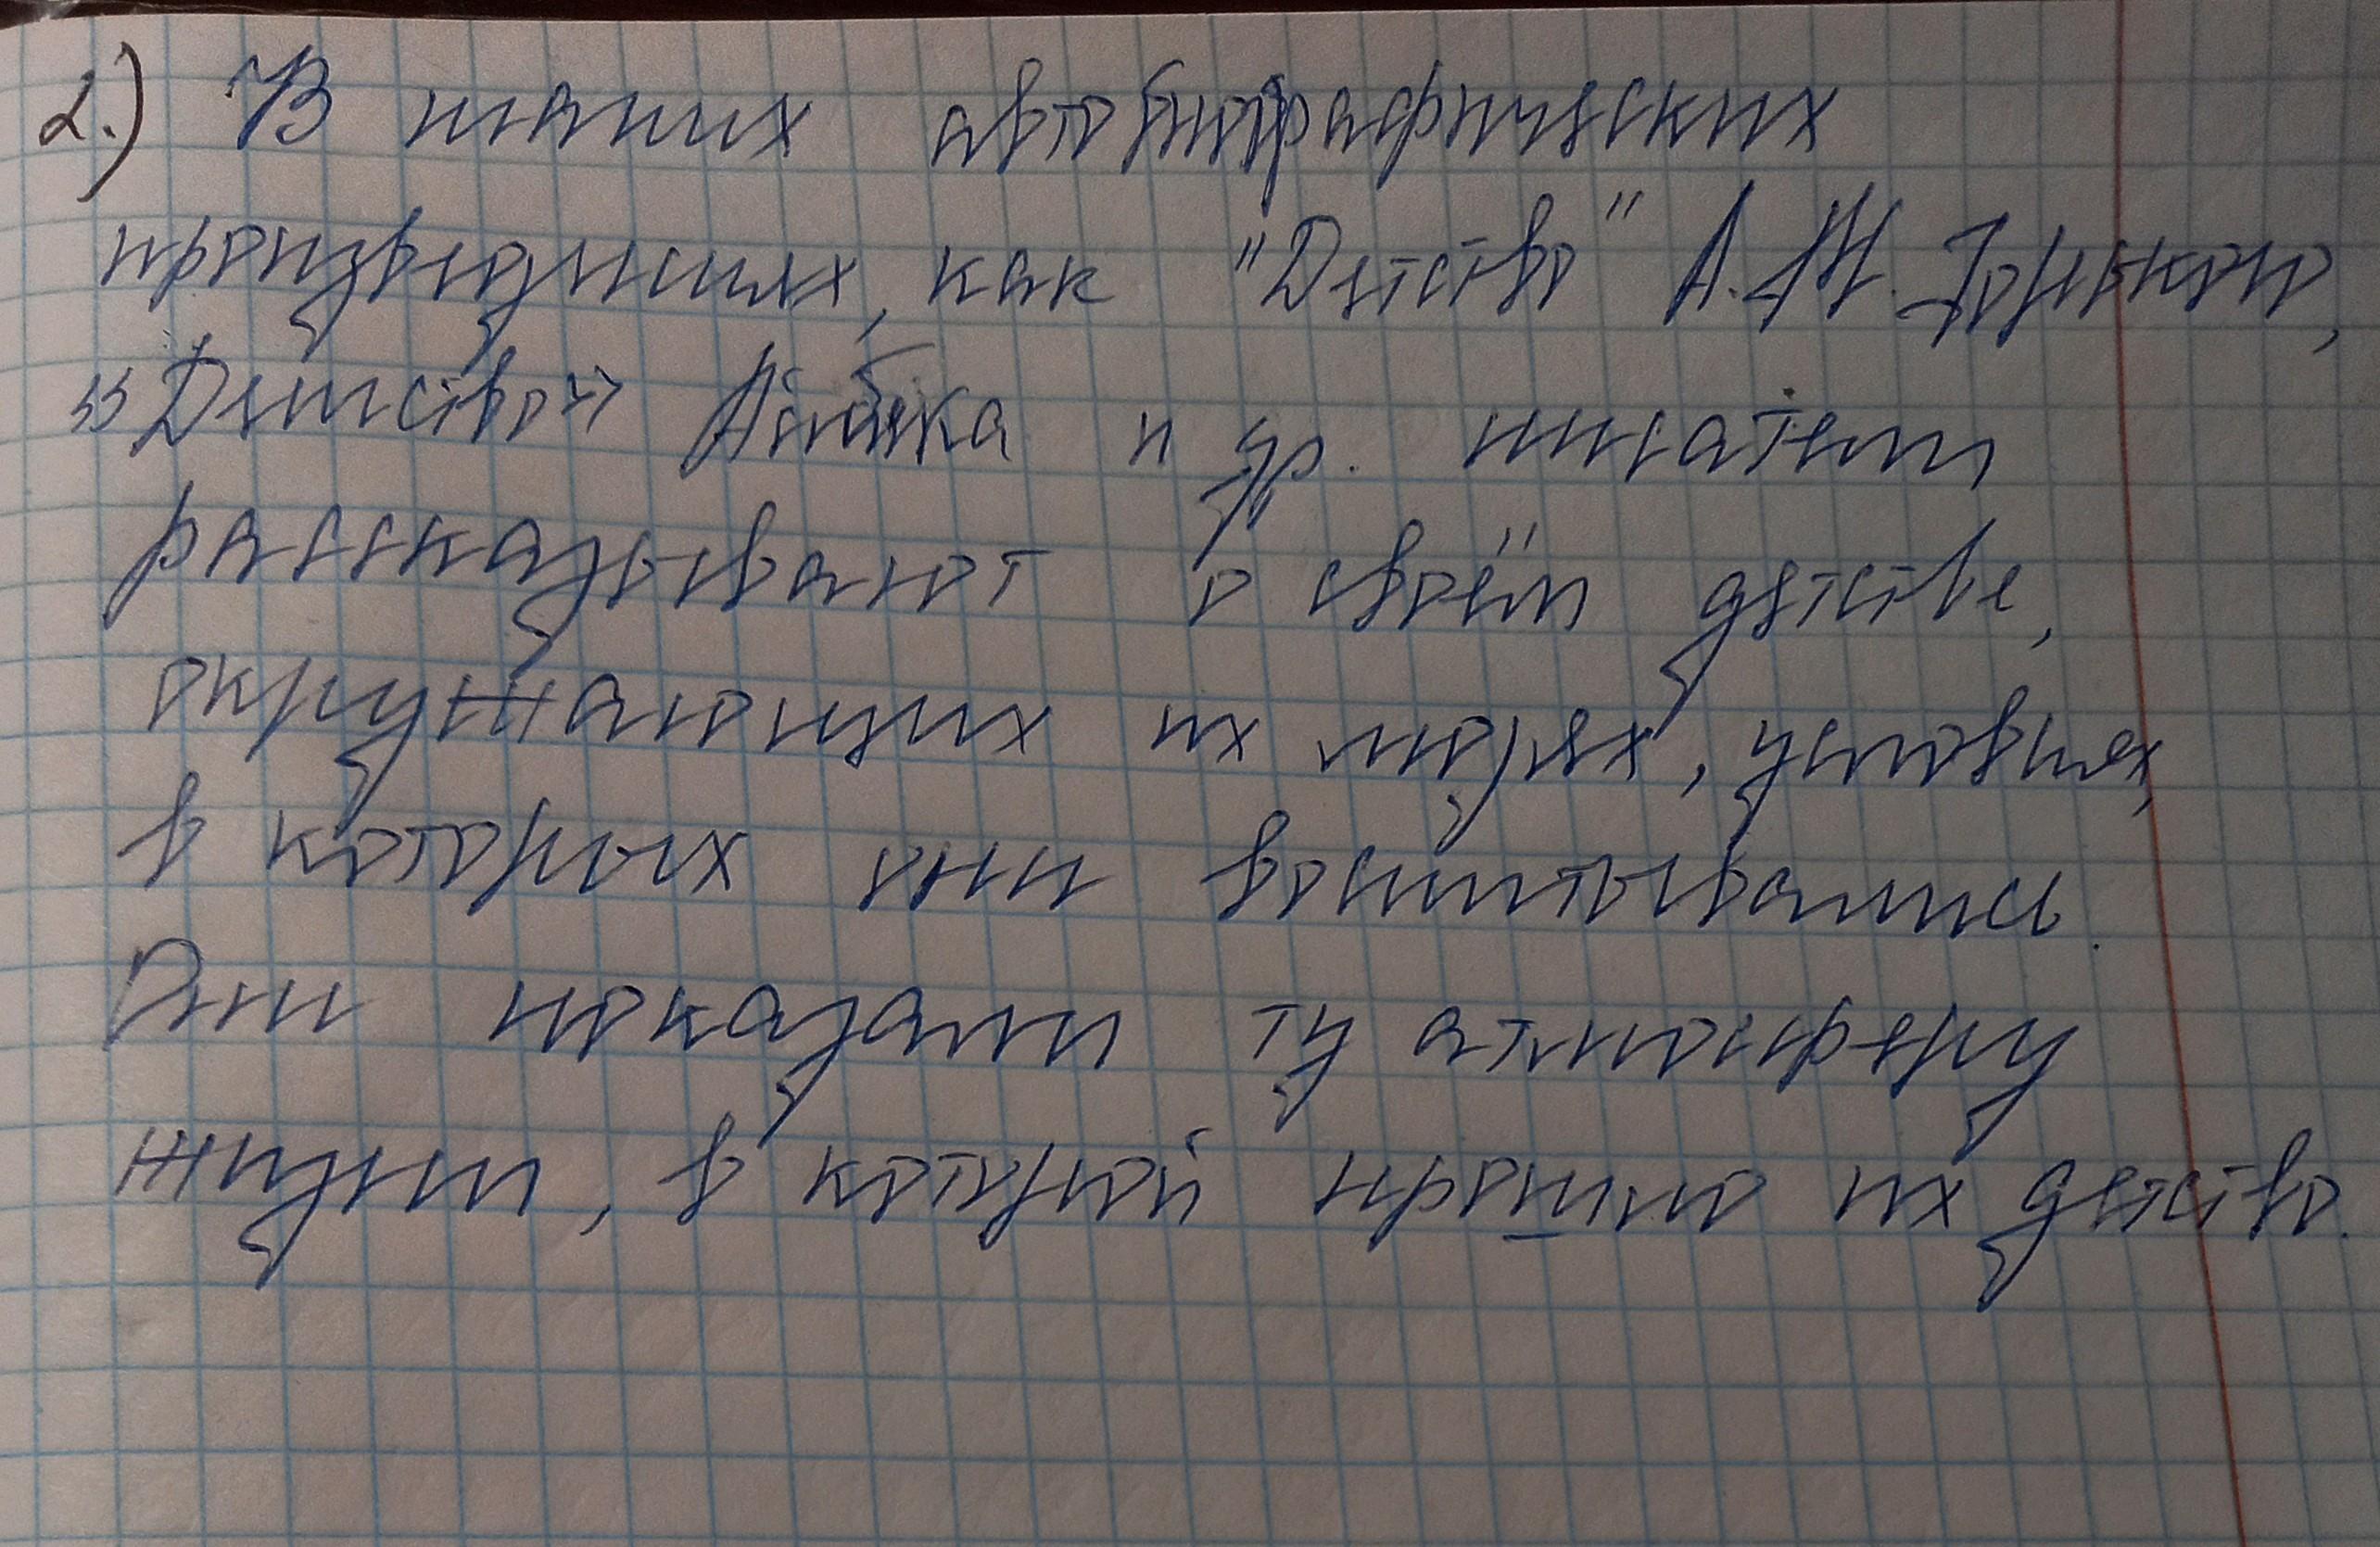 2.) В таких автобиографических
произведениях, как "Детство" А.М. Горького,
"Детство" Айбека и др. писатели
рассказывают о своём детстве,
окружающих их людях, условиях,
в которых они воспитывались.
Они показали ту атмосферу
жизни, в которой прошло их детство.